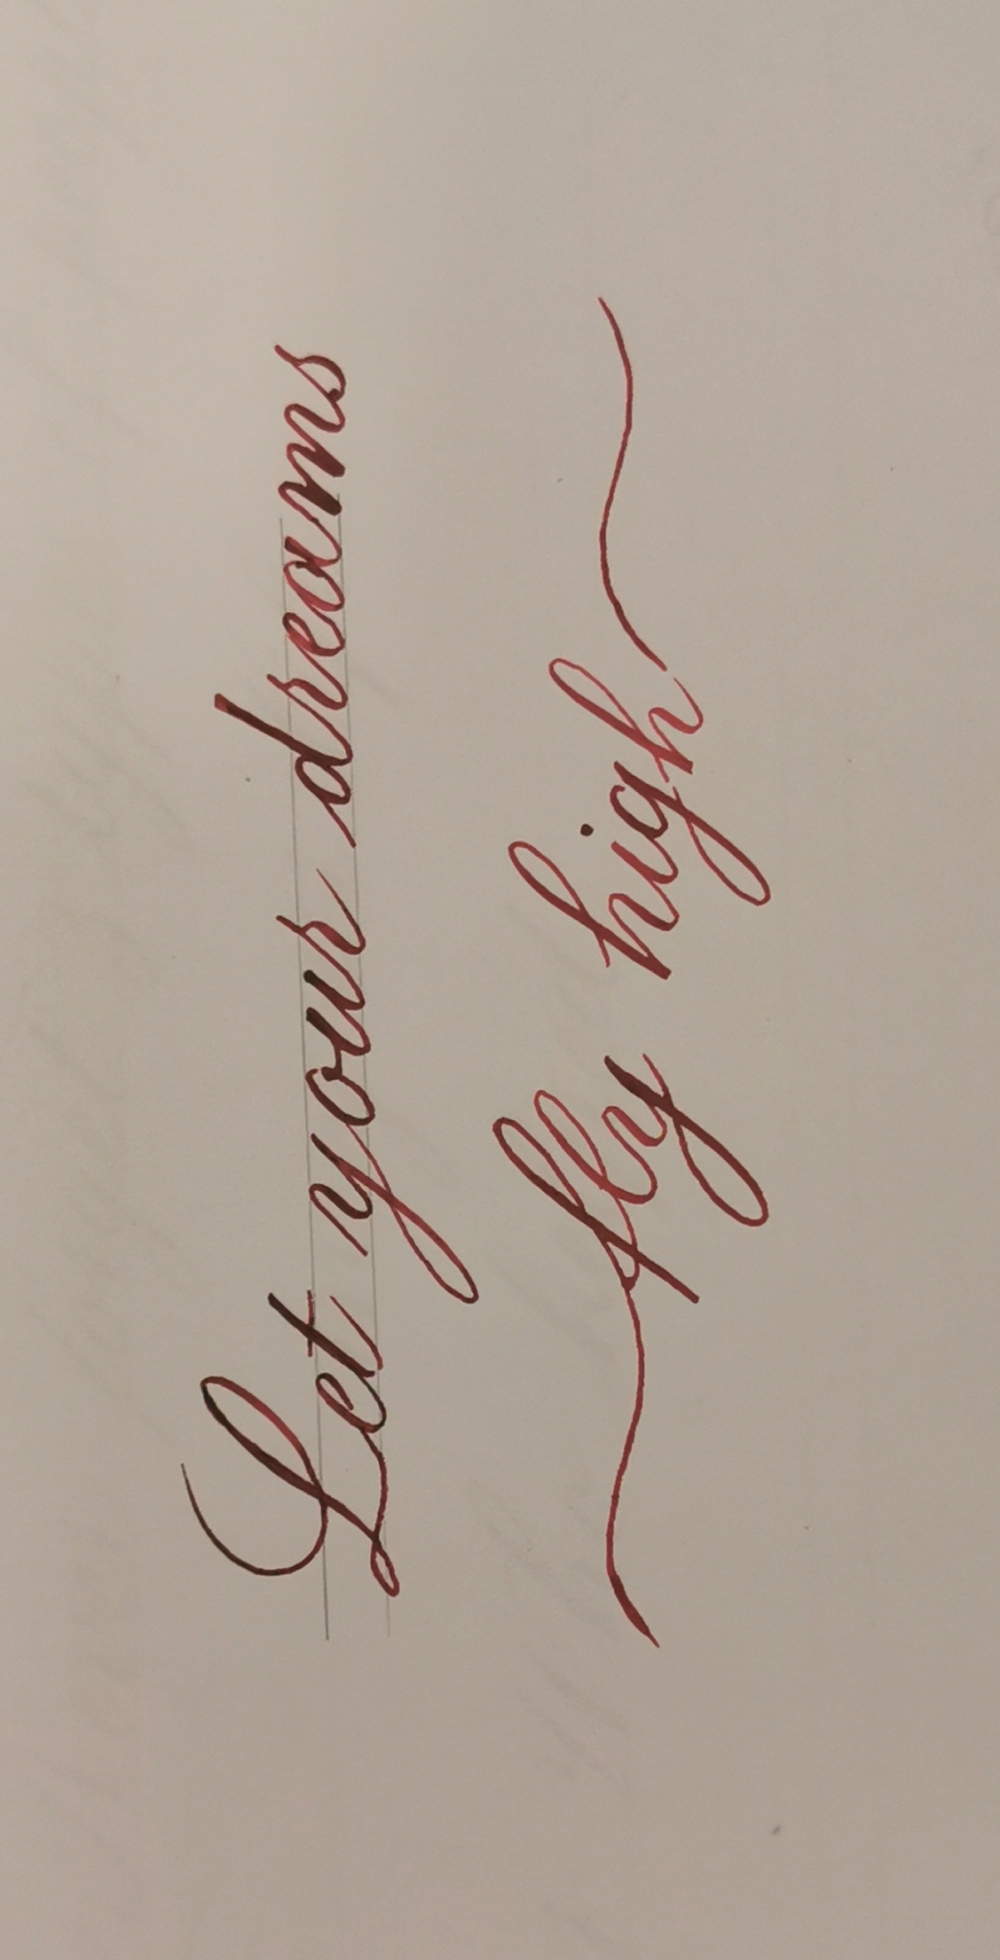 Let your dreams
fly high